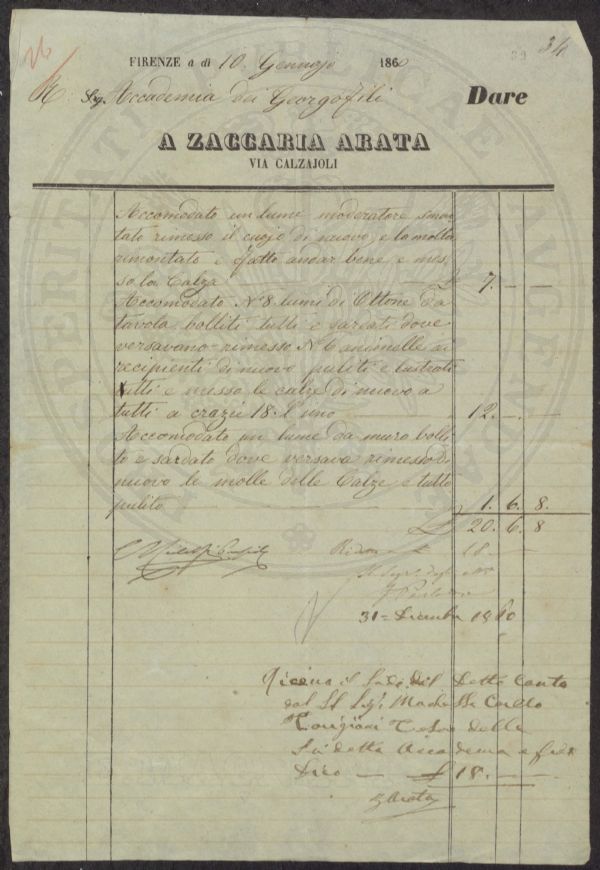 34
26
39
FIRENZE a dì 10. Gennajo 1860
Sig. Accademia dei Georgofili Dare
A ZACCARIA ARATA
VIA CALZAJOLI
Accomodato un lume moderatore smon
tato rimesso il cuojo di nuovo, e la molla
rimontato e fatto andar bene, e mes
so la Calza £ 7. — —
Accomodato N° 8 lumi di Ottone da
tavola bolliti tutti e sardati dove
versavano rimesso N. 6 animelle ai
recipienti di nuovo puliti e lustrati
tutti e messo le calze di nuovo a
tutti a crazie 18. l'uno 12. — —
Accomodato un lume da muro bolli
to e sardato dove versava rimesso di
nuovo le molle delle Calze e tutto
pulito — — — 1. 6. 8.
£ 20. 6. 8
18. —
31 = Dicembre 1860
il detto Conto
dal
Torrigiani delle
Su detta Accademia e
Dico — £ 18. — —
Z Arata